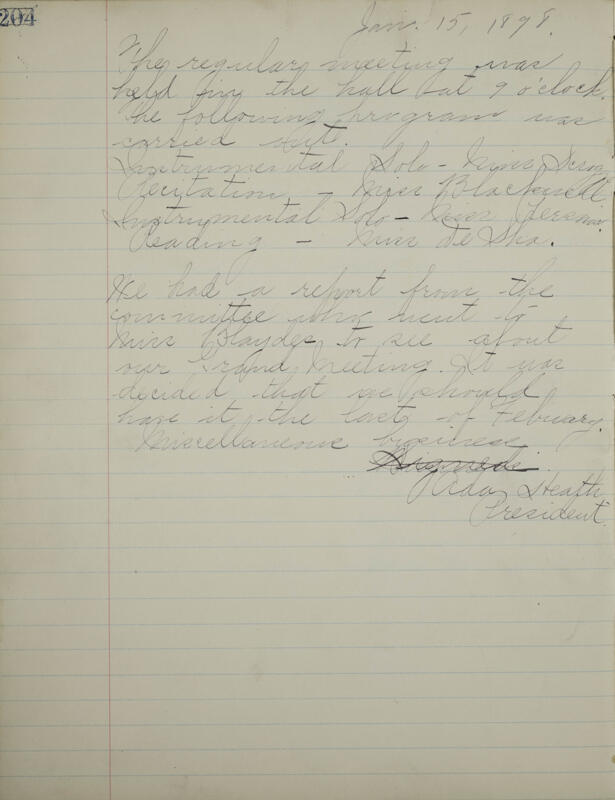 204
Jan. 15, 1898.
The regular meeting was
held in the hall at 9 o'clock.
The following program was
carried out.
Instrumental Solo - Miss
Recitation - Miss Blackwell
Instrumental Solo - Miss
Reading - Miss De Sha.
We had a report from the
committee who went to
Miss Blaydes to see about
our Grand Meeting. It was
decided that we should
have it the last of Febuary.
Miscellaneous business
Signed:
Ada Heath
President.